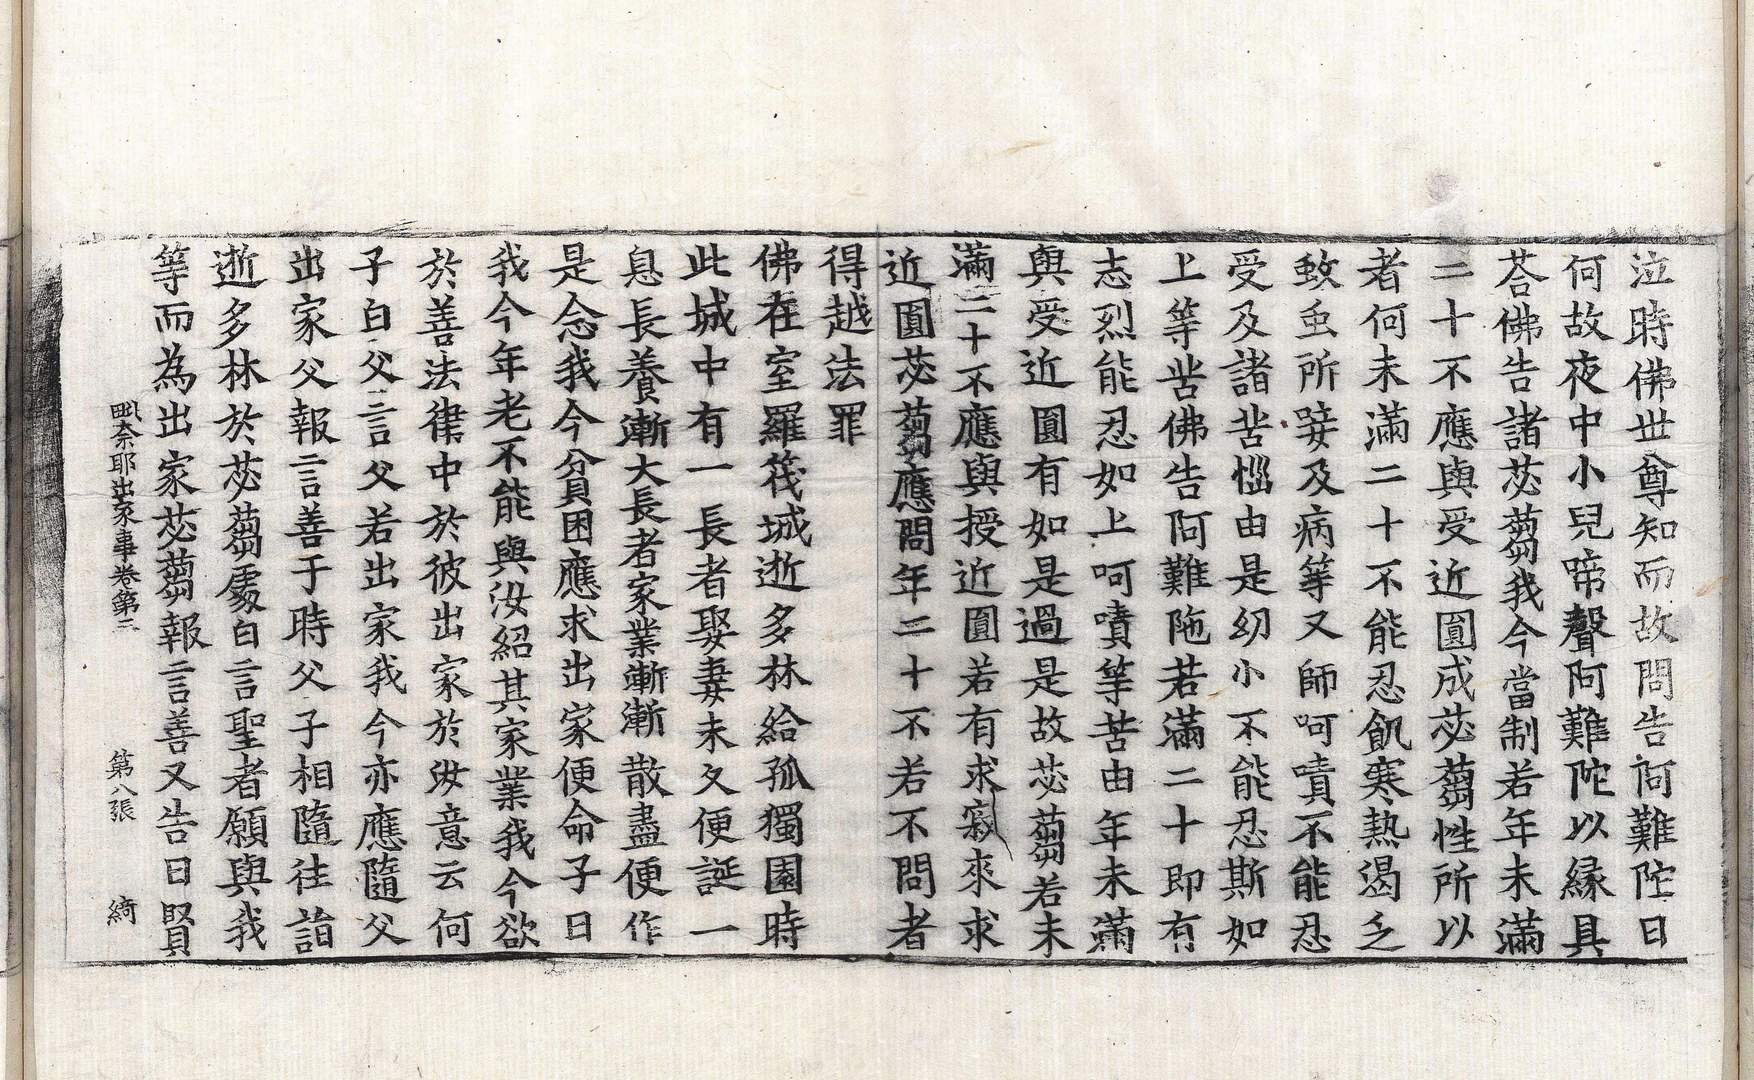 泣時佛世尊知而故問告阿難陀曰
何故夜中小兒啼聲阿難陀以縁具
荅佛告諸苾蒭我今當制若年未滿
二十不應與受近圓成苾蒭性所以
者何未滿二十不能忍飢寒熱渴乏
蚊虫所𨂂及病等又師呵嘖不能忍
受及諸苦惱由是幼小不能忍斯如
上等苦佛告阿難陁若滿二十即有
志烈能忍如上呵嘖等苦由年未滿
與受近圓有如是過是故苾蒭若未
滿二十不應與授近圓若有求寂來求
近圓苾蒭應問年二十不若不問者
得越法罪
佛在室羅筏城逝多林給孤獨園時
此城中有一長者娶妻未久便誕一
息長養漸大長者家業漸漸散盡便作
是念我今貧困應求出家便命子曰
我今年老不能與汝紹其家業我今欲
於善法律中於彼出家於汝意云何
子白父言父若出家我今亦應隨父
出家父報言善于時父子相隨往詣
逝多林於苾蒭處白言聖者願與我
等而為出家苾蒭報言善又告曰賢
毗奈耶出家事卷第三 第八張 綺